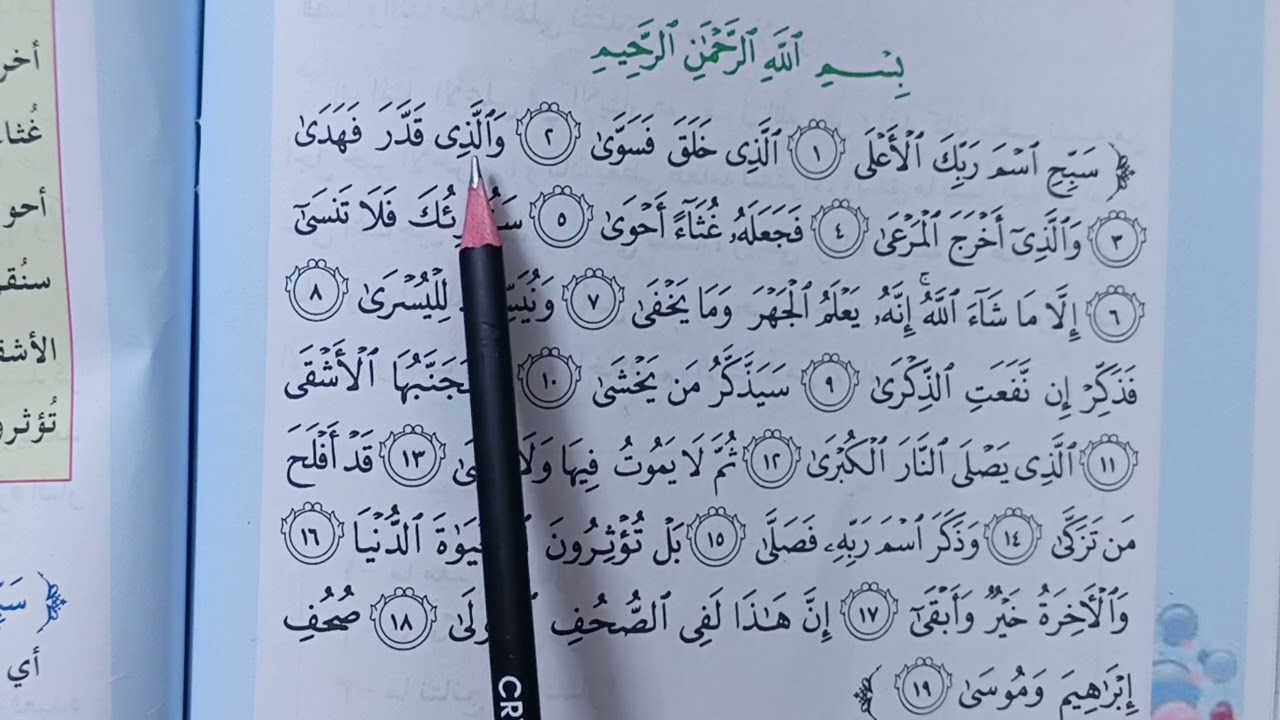 بِسْمِ ٱللَّهِ ٱلرَّحْمَٰنِ ٱلرَّحِيمِ
﴿ سَبِّحِ ٱسْمَ رَبِّكَ ٱلْأَعْلَى ١ ٱلَّذِى خَلَقَ فَسَوَّىٰ ٢ وَٱلَّذِى قَدَّرَ فَهَدَىٰ
٣ وَٱلَّذِىٓ أَخْرَجَ ٱلْمَرْعَىٰ ٤ فَجَعَلَهُۥ غُثَآءً أَحْوَىٰ ٥ فَلَا تَنسَىٰٓ
٦ إِلَّا مَا شَآءَ ٱللَّهُ ۚ إِنَّهُۥ يَعْلَمُ ٱلْجَهْرَ وَمَا يَخْفَىٰ ٧ لِلْيُسْرَىٰ ٨
فَذَكِّرْ إِن نَّفَعَتِ ٱلذِّكْرَىٰ ٩ سَيَذَّكَّرُ مَن يَخْشَىٰ ١٠ ٱلْأَشْقَى
١١ ٱلَّذِى يَصْلَى ٱلنَّارَ ٱلْكُبْرَىٰ ١٢ ثُمَّ لَا يَمُوتُ فِيهَا ١٣ قَدْ أَفْلَحَ
مَن تَزَكَّىٰ ١٤ وَذَكَرَ ٱسْمَ رَبِّهِۦ فَصَلَّىٰ ١٥ بَلْ تُؤْثِرُونَ ٱلدُّنْيَا ١٦
وَٱلْـَٔاخِرَةُ خَيْرٌ وَأَبْقَىٰٓ ١٧ إِنَّ هَٰذَا لَفِى ٱلصُّحُفِ ١٨ صُحُفِ
إِبْرَٰهِيمَ وَمُوسَىٰ ١٩ ﴾
غُثاء
أحو
سنُقر
الأشق
تُؤثرو
أي
CR